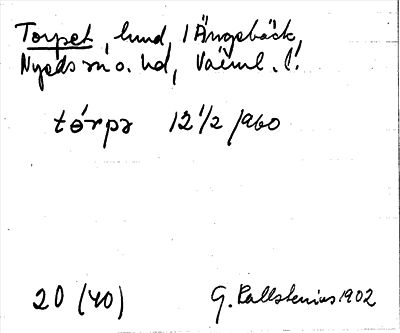 Torpet, lund, i Ängsbäck,
Nyeds sn o. hd, Värml. l.
tɵ́rpə 12 1/2 1960
20 (40) G. Kallstenius 1902